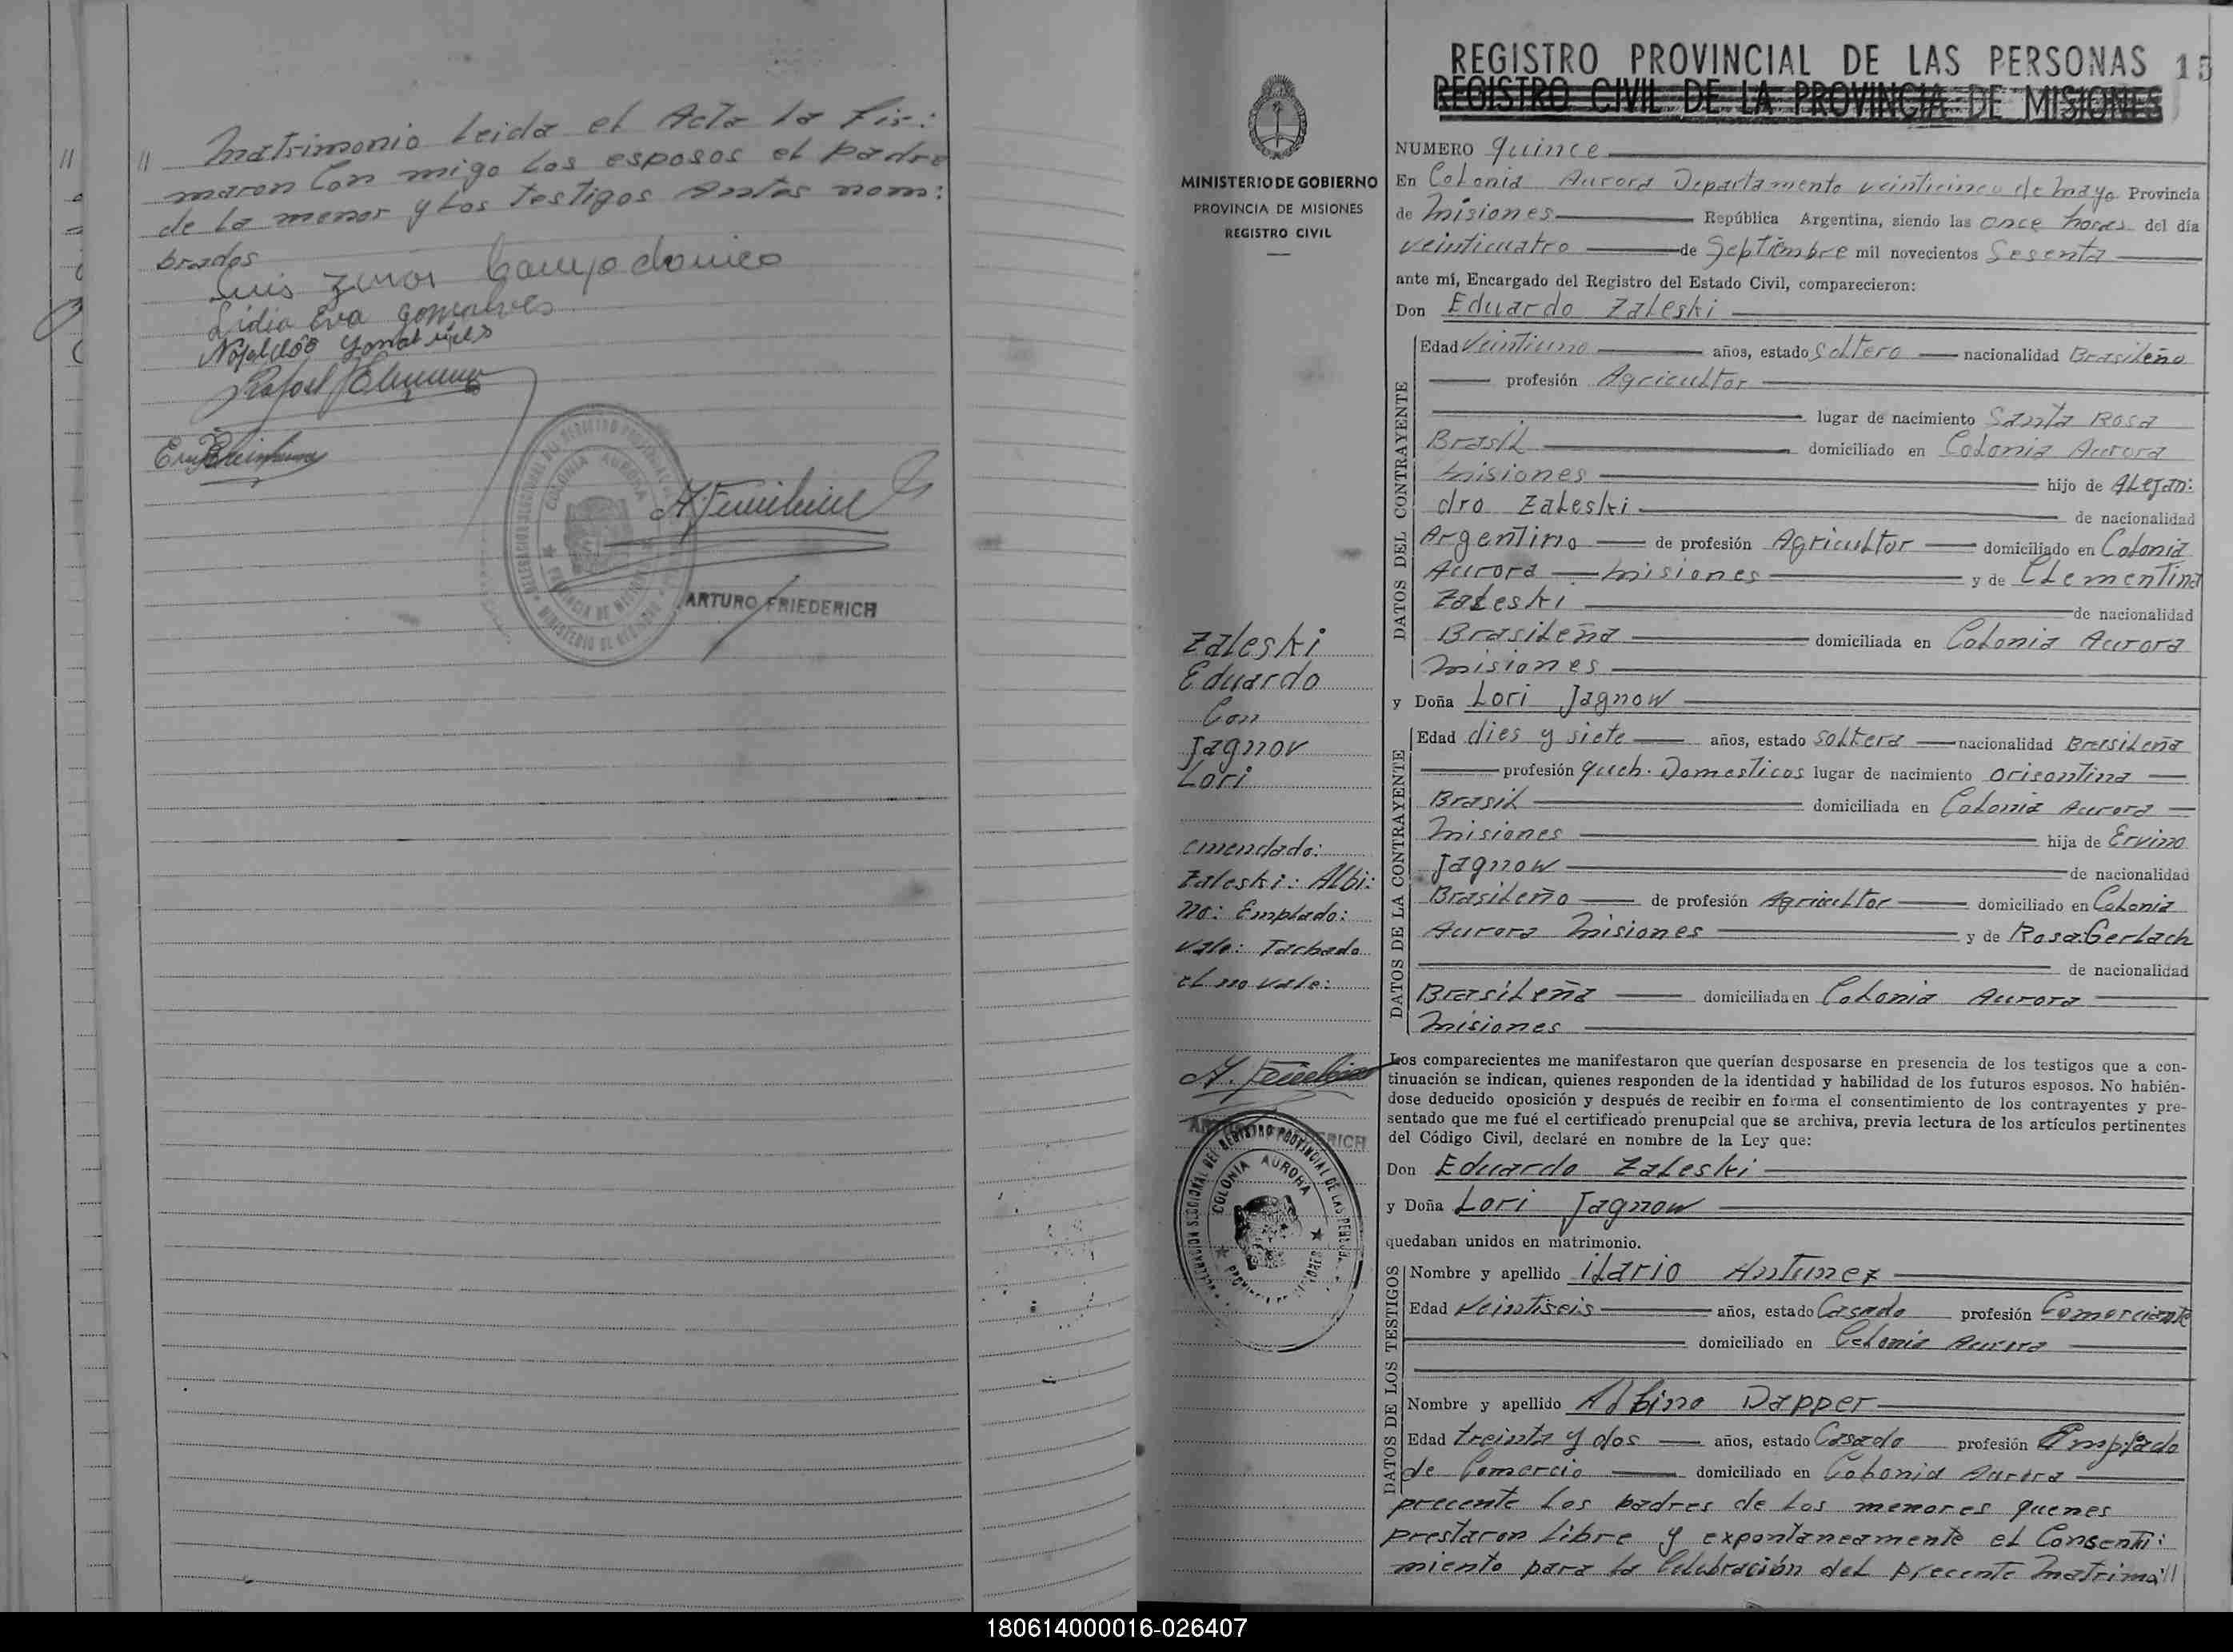 // Matrimonio Leida el Acta La Fir:
maron Con migo Los esposos el padre
de La menor y Los Testigos Antes nom:
brados
Luis Campodonico
Lidia Eva Gonçalves
Rafael
DELEGACION SECCIONAL DEL REGISTRO PROVINCIAL DE LAS PERSONAS
COLONIA AURORA
PROVINCIA DE MISIONES
MINISTERIO DE GOBIERNO
ARTURO FRIEDERICH
MINISTERIO DE GOBIERNO
PROVINCIA DE MISIONES
REGISTRO CIVIL
Zaleski
Eduardo
Con
Jagnov
Lori
emendado:
Zaleski: Albi:
no: Emplado:
vale: Tachado
el no vale:
ARTURO FRIEDERICH
DELEGACION SECCIONAL DEL REGISTRO PROVINCIAL DE LAS PERSONAS
COLONIA AURORA
REGISTRO PROVINCIAL DE LAS PERSONAS 15
REGISTRO CIVIL DE LA PROVINCIA DE MISIONES
NUMERO quince
En Colonia Aurora Departamento veinticinco de mayo Provincia
de Misiones República Argentina, siendo las once horas del día
veinticuatro de Septiembre mil novecientos Sesenta
ante mí, Encargado del Registro del Estado Civil, comparecieron:
Don Eduardo Zaleski
DATOS DEL CONTRAYENTE
Edad Veintiuno años, estado Soltero nacionalidad Brasileño
profesión Agricultor
lugar de nacimiento Santa Rosa
Brasil domiciliado en Colonia Aurora
Misiones hijo de Alejan:
dro Zaleski de nacionalidad
Argentino de profesión Agricultor domiciliado en Colonia
Aurora Misiones y de Clementina
Zaleski de nacionalidad
Brasileña domiciliada en Colonia Aurora
Misiones
y Doña Lori Jagnow
DATOS DE LA CONTRAYENTE
Edad dies y siete años, estado soltera nacionalidad Brasileña
profesión queh. Domesticos lugar de nacimiento orisontina
Brasil domiciliada en Colonia Aurora
Misiones hija de Ervino
Jagnow de nacionalidad
Brasileño de profesión Agricultor domiciliado en Colonia
Aurora Misiones y de Rosa Gerlach
de nacionalidad
Brasileña domiciliada en Colonia Aurora
Misiones
Los comparecientes me manifestaron que querían desposarse en presencia de los testigos que a con-
tinuación se indican, quienes responden de la identidad y habilidad de los futuros esposos. No habién-
dose deducido oposición y después de recibir en forma el consentimiento de los contrayentes y pre-
sentado que me fué el certificado prenupcial que se archiva, previa lectura de los artículos pertinentes
del Código Civil, declaré en nombre de la Ley que:
Don Eduardo Zaleski
y Doña Lori Jagnow
quedaban unidos en matrimonio.
DATOS DE LOS TESTIGOS
Nombre y apellido ilario Antunez
Edad Veintiseis años, estado Casado profesión Comerciante
domiciliado en Colonia Aurora
Nombre y apellido Albino Dapper
Edad treinta y dos años, estado Casado profesión Emplado
de Comercio domiciliado en Colonia Aurora
precente Los padres de Los menores quenes
prestaron Libre y expontaneamente el Consenti:
miento para La Celebración del precente Matrimo//
180614000016-026407